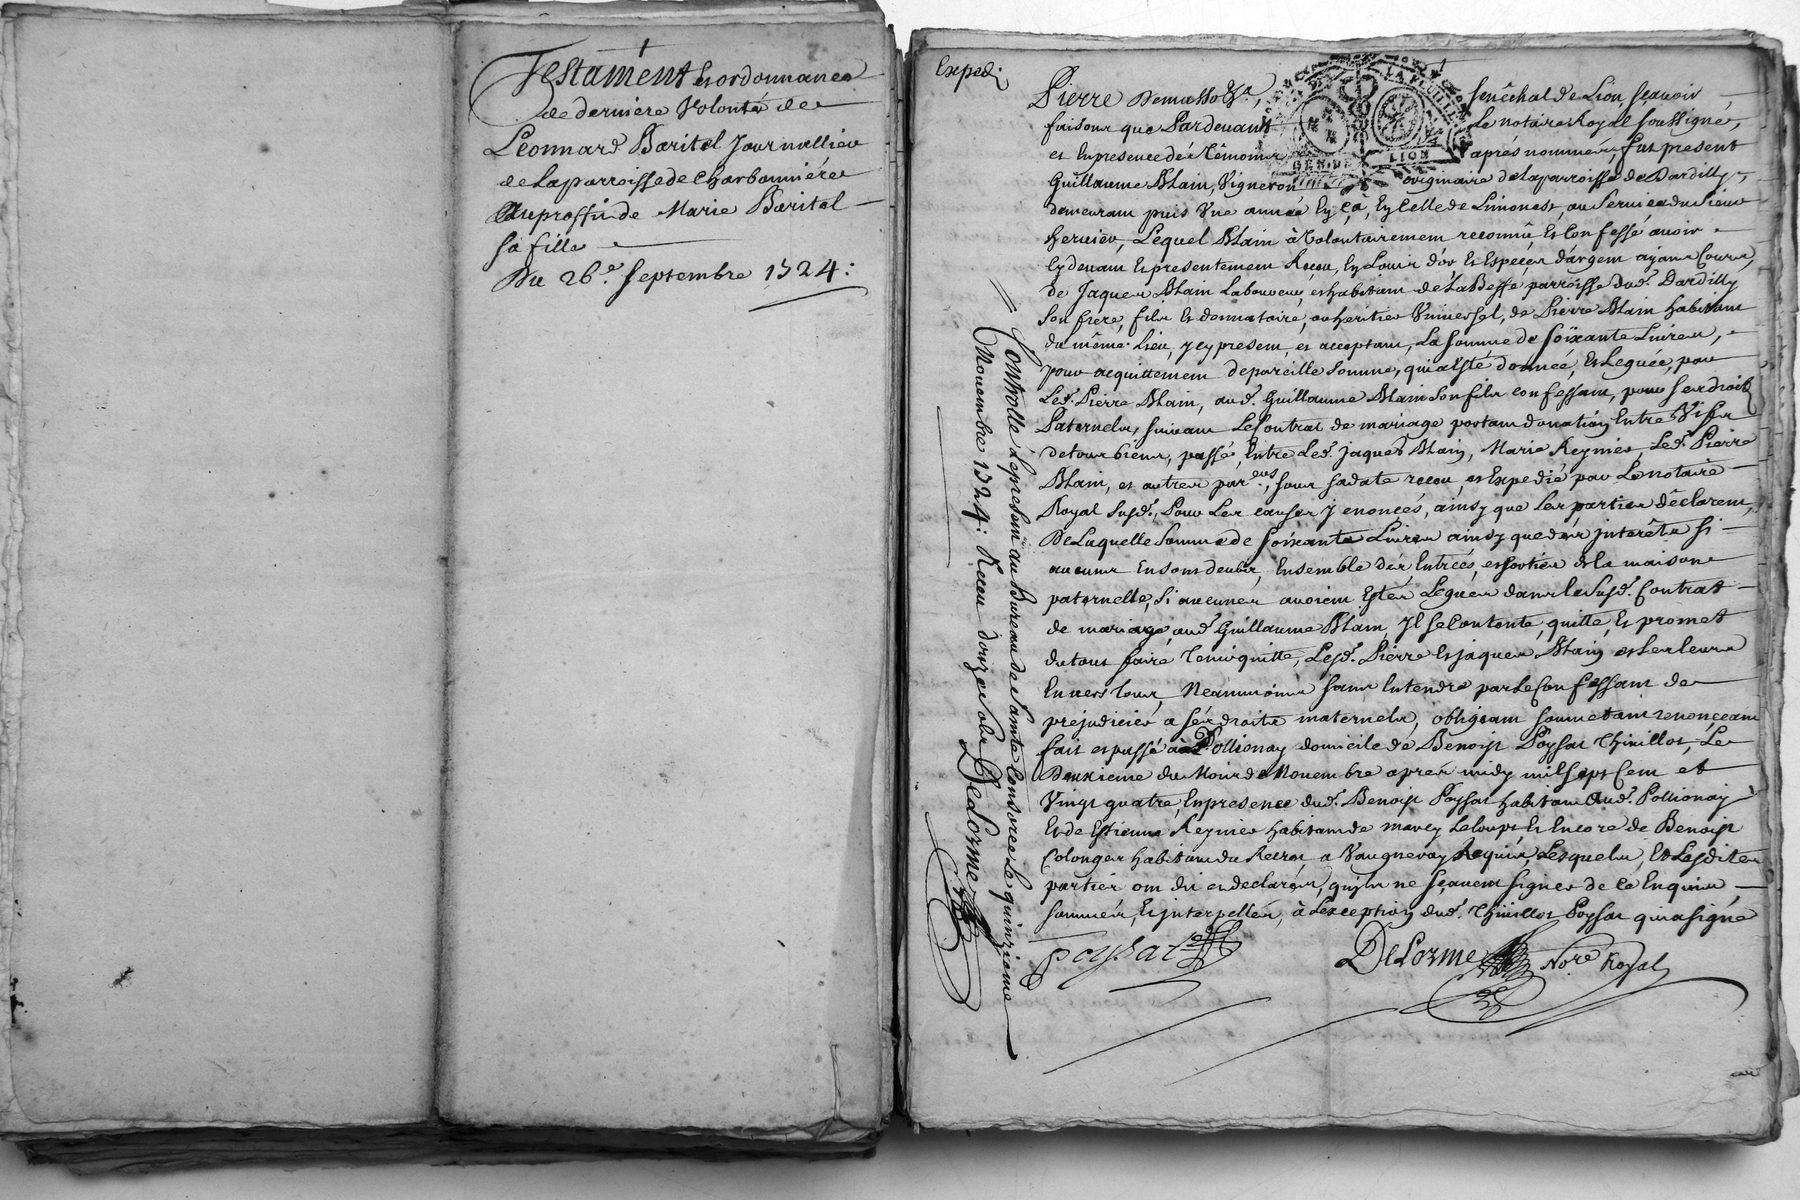 Testament Et ordonnance
de derniere Volonté de
Léonnard Baritel Journallier
de La parroisse de Charbonniéres
Au proffit de Marie Baritel
sa fille
Du 26.e Septembre 1724:
Exped.
Pierre Demasso &.a, Senêchal de Lion, sçavoir
faisons que Pardevant Le notaire Royal soussigné,
et En presence dés témoins aprés nommés, fut present
Guillaume Blain, Vigneron originaire de La parroisse de Dardilly,
demeurant puis Vne année En çà, En Celle de Limonest, au Service du Sieur
Lequel Blain à Volontairement reconnû et Confessé avoir
Cy devant Et presentement Reçeu, En Louis d'or Et Especes d'argent ayant Cours,
de Jaques Blain Laboureur, et habitant de La Besse parroisse dud. Dardilly
Son frere, fils Et donnataire, ou heritier Vniversel, de Pierre Blain habitant
du même Lieu, Icy present, et acceptant, La Somme de soixante Livres,
pour acquittement de pareille Somme, qui a Esté donnée, Et Leguée, par
Led. Pierre Blain, aud. Guillaume Blain Son fils confessant, pour Ses droits
Paternels, suivant Le Contrat de mariage portant donation Entre Vifs
de tous biens, passé, Entre Led. Jaques Blain, Marie Reynier, Led. Pierre
Blain, et autres par.ens, sous sa date reçeu, et Expedié par Le notaire
Royal Susd., Pour Les causes y enoncés, ainsy que Les parties déclarent,
De Laquelle Somme de soixante Livres ainsy que des jnterêts si
aucuns En sont deubs, Ensemble dés Entrées, et sorties de La maison
paternelle, si aucunes avoient Estés Leguées dans Le Susd. Contrat
de mariage, aud. Guillaume Blain, Jl se Contente, quitte, Et promet
du tout faire tenir quitte, Lesd. Pierre Et jaques Blain et Les Leurs
Envers tous, Neanmoins sans Entendre par Le Confessant de
prejudicier a sés droits maternels, obligeant soumetant renonçeant
fait et passé à Pollionay domicile de Benoist Poysat Thivillot, Le
Deuxieme du Mois de Novembre aprés midy mil sept Cent et
Vingt quatre, En presence dud. Benoist Poysat habitant Aud. Pollionay
Et de Estienne Reynier habitant de marcy Leloup, Et Encore de Benoist
Colonges habitant du Recret a Vaugneray Requis, Lesquels, Et Lesdites
parties ont dit et declarés, qu'ils ne sçavent signer de ce Enquis
sommés, Et jnterpellés, à L'exception dud. Thivillot Poysat qui a signé
Poysat
DeLorme No.re Royal
Controllé Le present au Bureau de Sainte Consorce Le quinzieme
Novembre 1724: Reçeu douze sols DeLorme